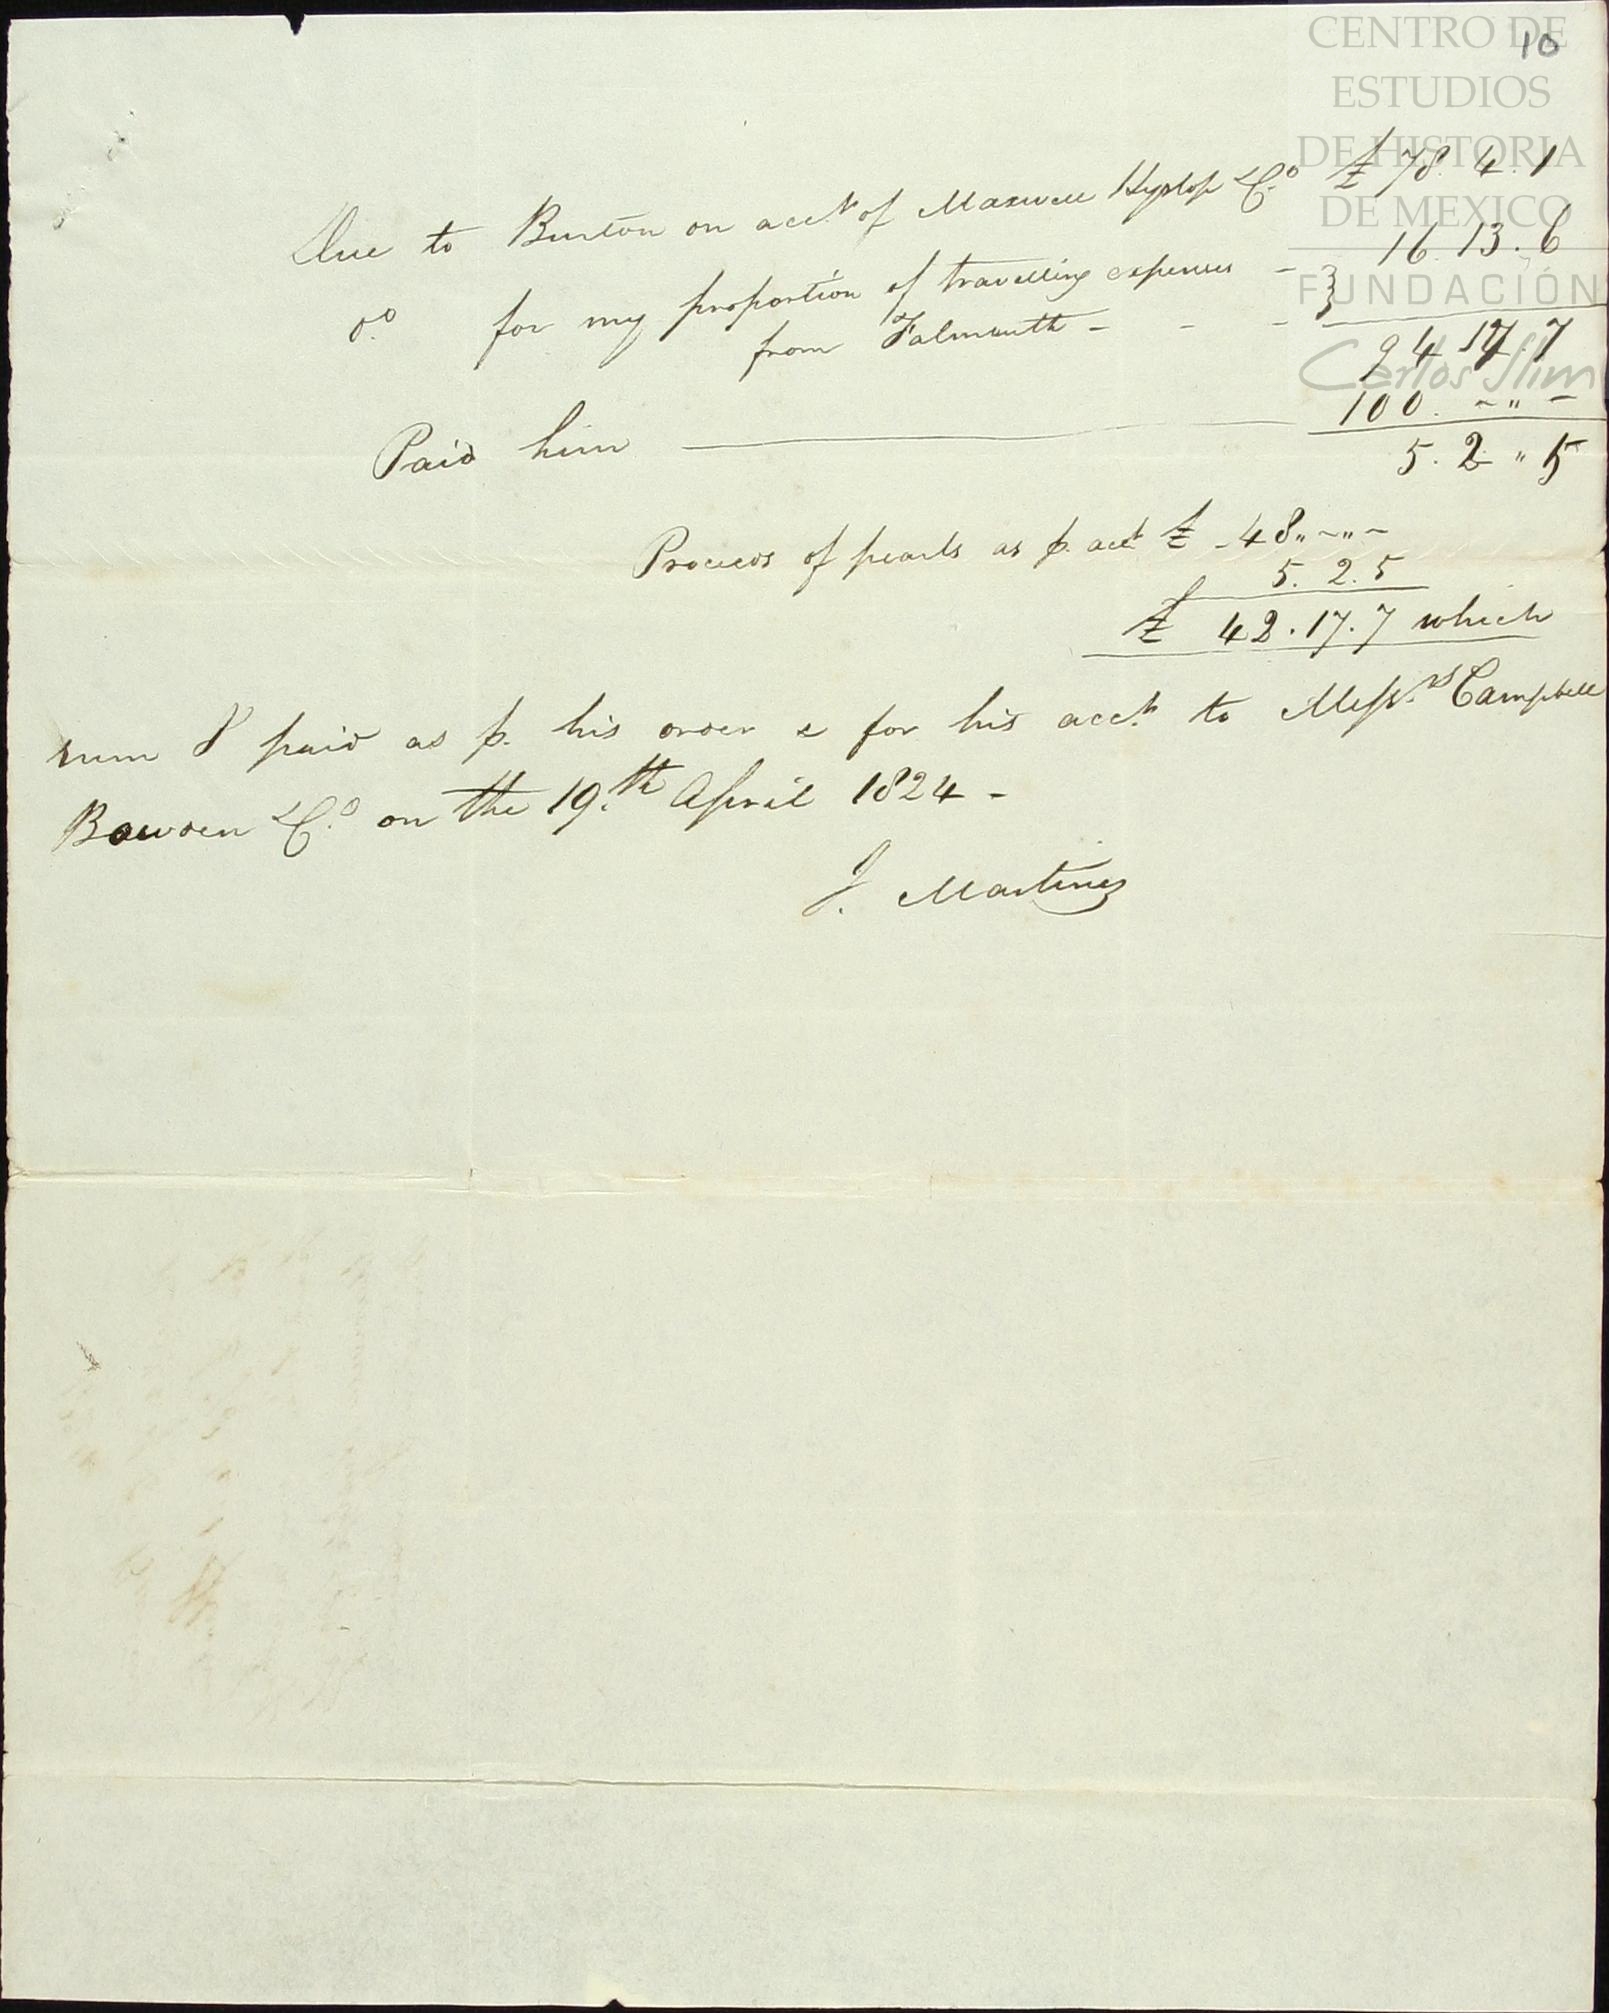 10
CENTRO DE
ESTUDIOS
DE HISTORIA
DE MEXICO
FUNDACIÓN
Carlos Slim
Due to Burton on acct. of Maxwell Hyslop &Co. £ 78. 4. 1
do. for my proportion of travelling expenses - } 16. 13. 6
from Falmouth - - -
94 17. 7
Paid him 100. - " -
5. 2 " 5
Proceeds of pearls as p. acct. £ - 48 " - " -
5. 2. 5
£ 42. 17. 7 which
sum I paid as p. his order & for his acct. to Messrs. Campbell
Bowden &Co. on the 19.th April 1824 -
J. Martinez